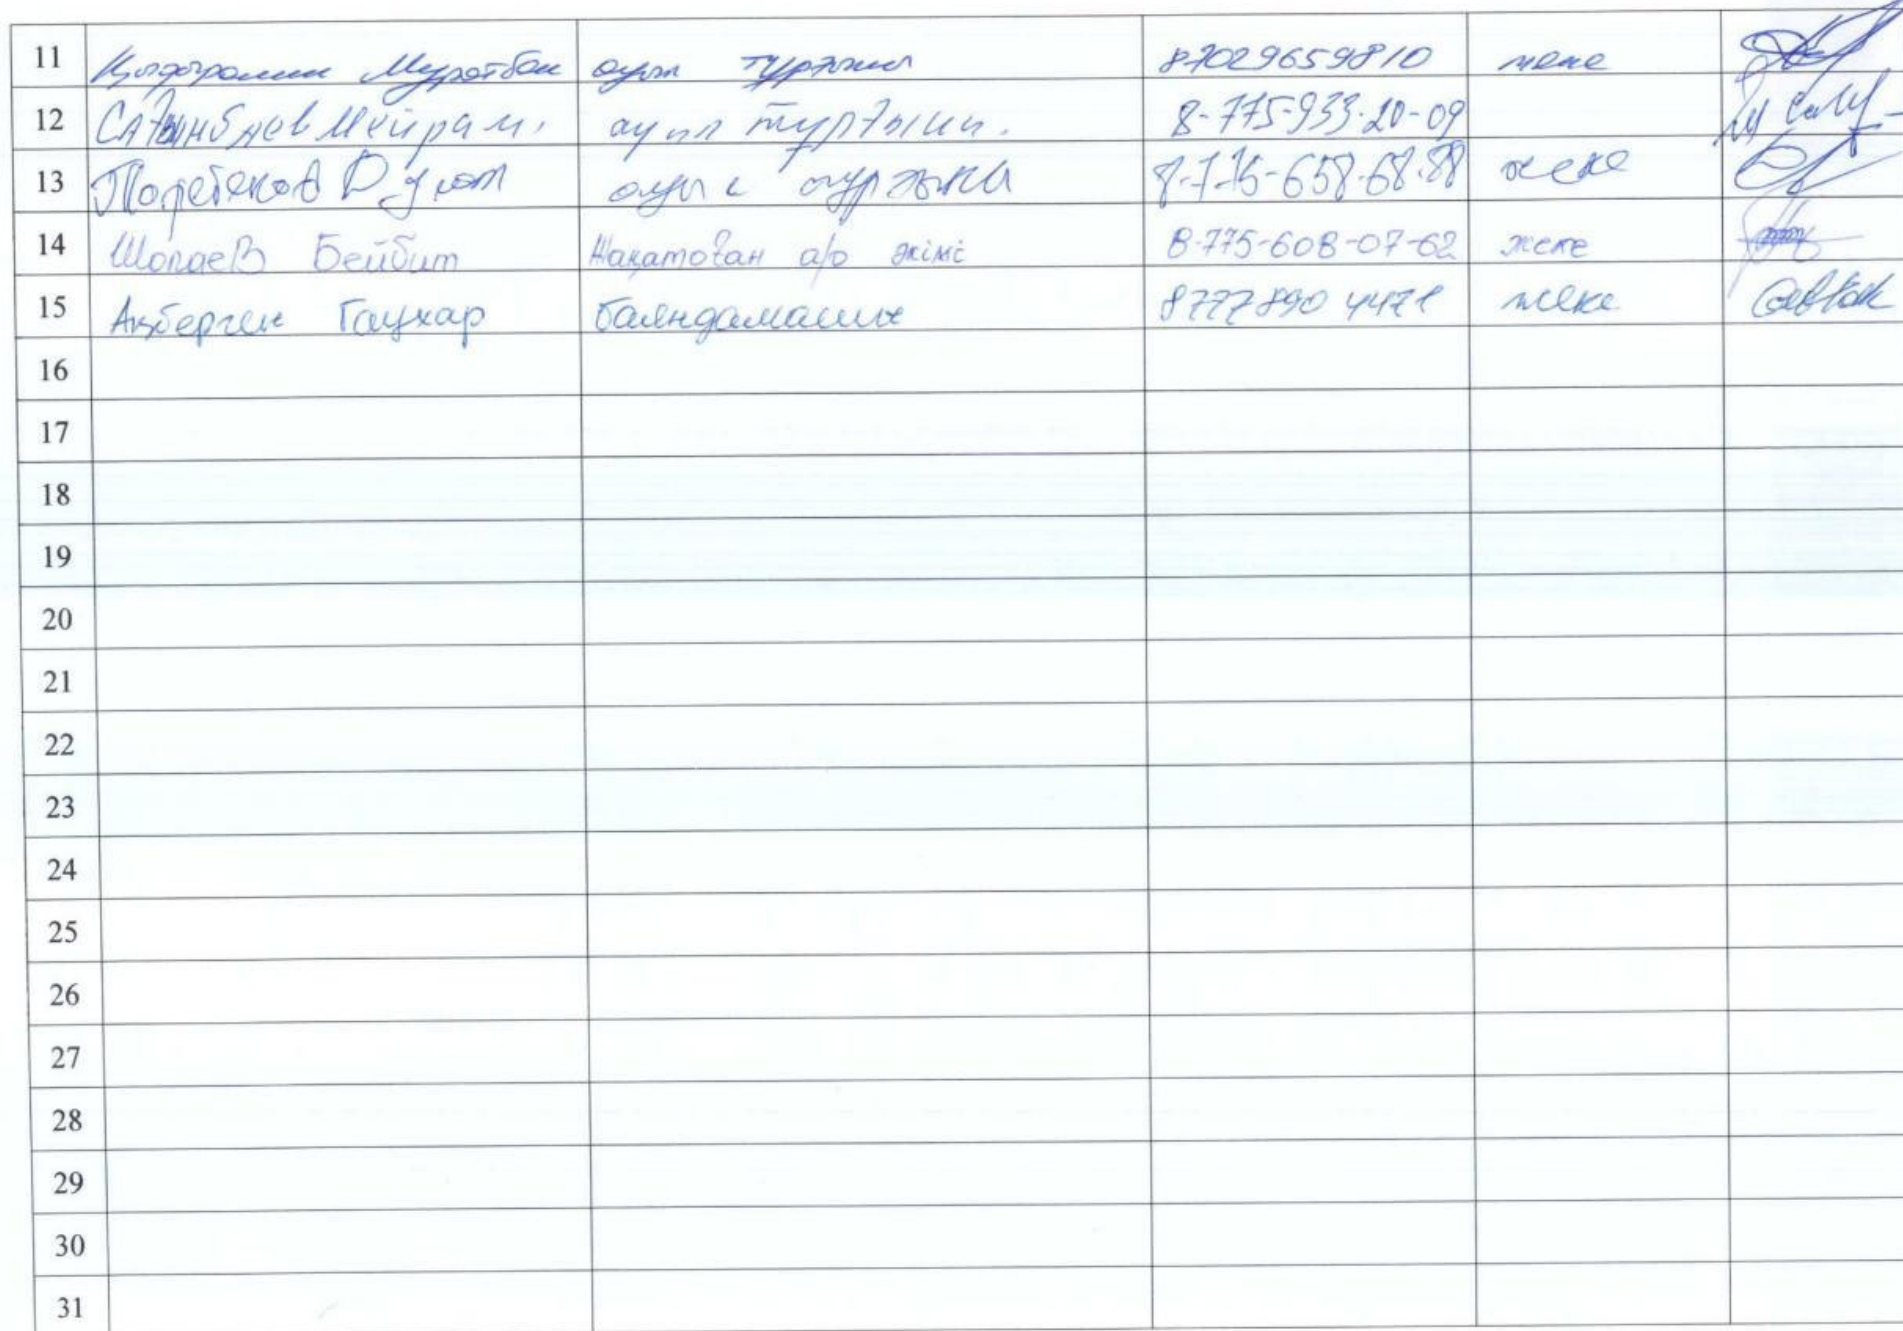 11 Мұратбек ауыл тұрғыны 87029659810 жеке
12 Сатынбаев Мейрам. ауыл тұрғыны. 8-775-933-20-09
13 ауыл тұрғыны 8-7-76-658-68-88 жеке
14 Шопаев Бейбит Жанатоған а/о әкімі 8-775-608-07-62 жеке
15 Ақберген Гаухар баяндамашы 8777890 4471 жеке
16
17
18
19
20
21
22
23
24
25
26
27
28
29
30
31